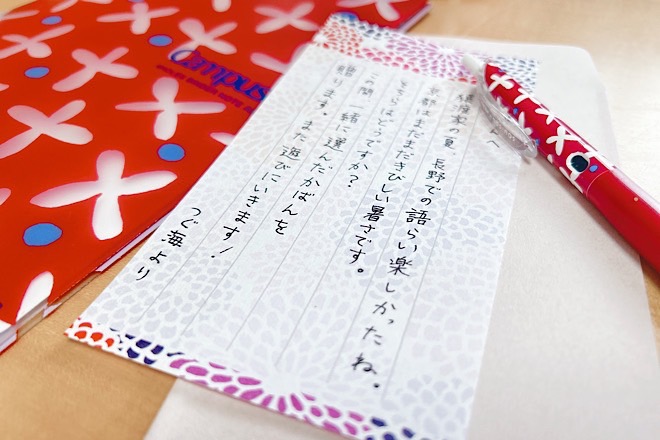 んへ
家の夏、長野での語らい楽しかったね。
京都はまだまだきびしい暑さです。
そちらはどうですか?
この間、一緒に選んだかばんを
贈ります。また遊びにいきます!
つぐ海より
Campus